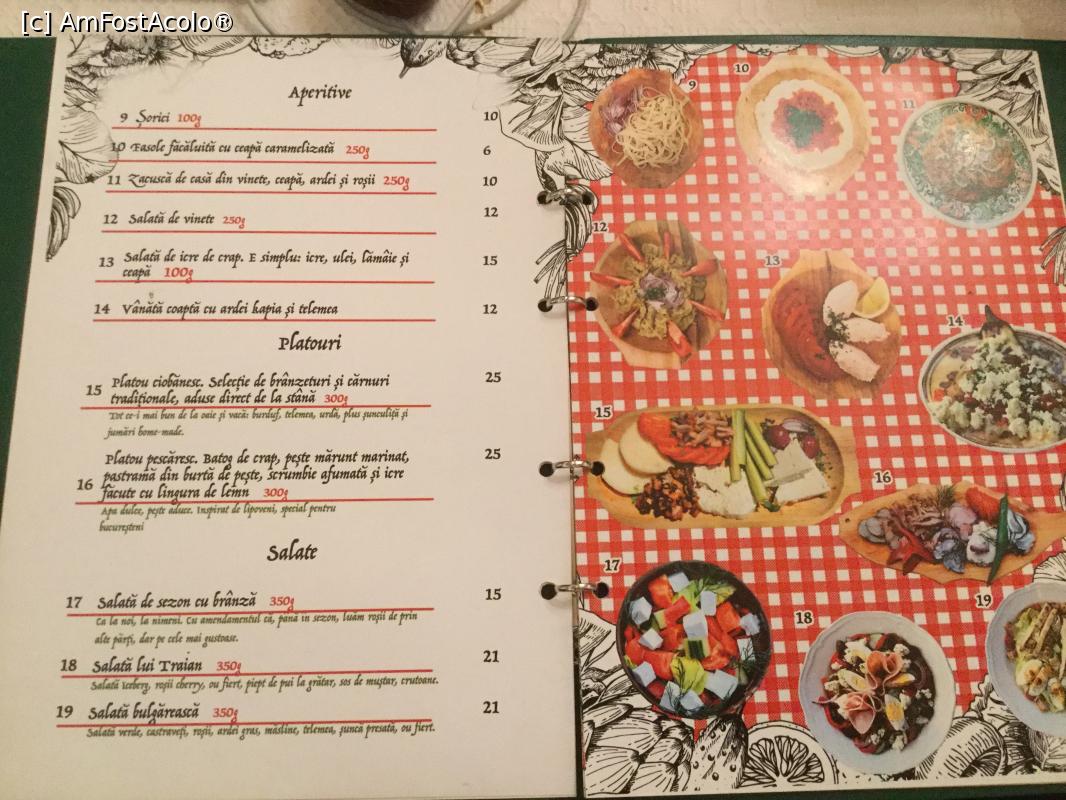 [c] AmFostAcolo®
Aperitive
9 Șorici 100g 10
10 Fasole făcăluită cu ceapă caramelizată 250g 6
11 Zacuscă de casă din vinete, ceapă, ardei și roșii 250g 10
12 Salată de vinete 250g 12
13 Salată de icre de crap. E simplu: icre, ulei, lămâie și 15
ceapă 100g
14 Vânătă coaptă cu ardei kapia și telemea 12
Platouri
15 Platou ciobănesc. Selecție de brânzeturi și cărnuri 25
tradiționale, aduse direct de la stână 300g
Tot ce-i mai bun de la oaie și vacă: burduf, telemea, urdă, plus șunculiță și
jumări home-made.
Platou pescăresc. Batog de crap, pește mărunt marinat, 25
pastramă din burtă de pește, scrumbie afumată și icre
16 făcute cu lingura de lemn 300g
Apa dulce, pește aduce. Inspirat de lipoveni, special pentru
bucureșteni
Salate
17 Salată de sezon cu brânză 350g 15
Ca la noi, la nimeni. Cu amendamentul că, până în sezon, luăm roșii de prin
alte părți, dar pe cele mai gustoase.
18 Salată lui Traian 350g 21
Salată iceberg, roșii cherry, ou fiert, piept de pui la grătar, sos de muștar, crutoane.
19 Salată bulgărească 350g 21
Salată verde, castraveți, roșii, ardei gras, măsline, telemea, șuncă presată, ou fiert.
9
10
11
12
13
14
15
16
17
18
19